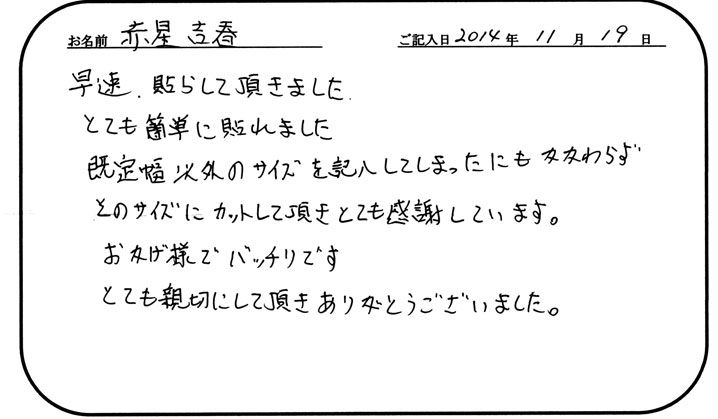 お名前 赤星 吉春 ご記入日 2014年 11月 19日
早速、貼らして頂きました
とても簡単に貼れました
既定幅以外のサイズを記入してしまったにもカカわらず
そのサイズにカットして頂きとても感謝しています。
おカげ様でバッチリです
とても親切にして頂きありがとうございました。